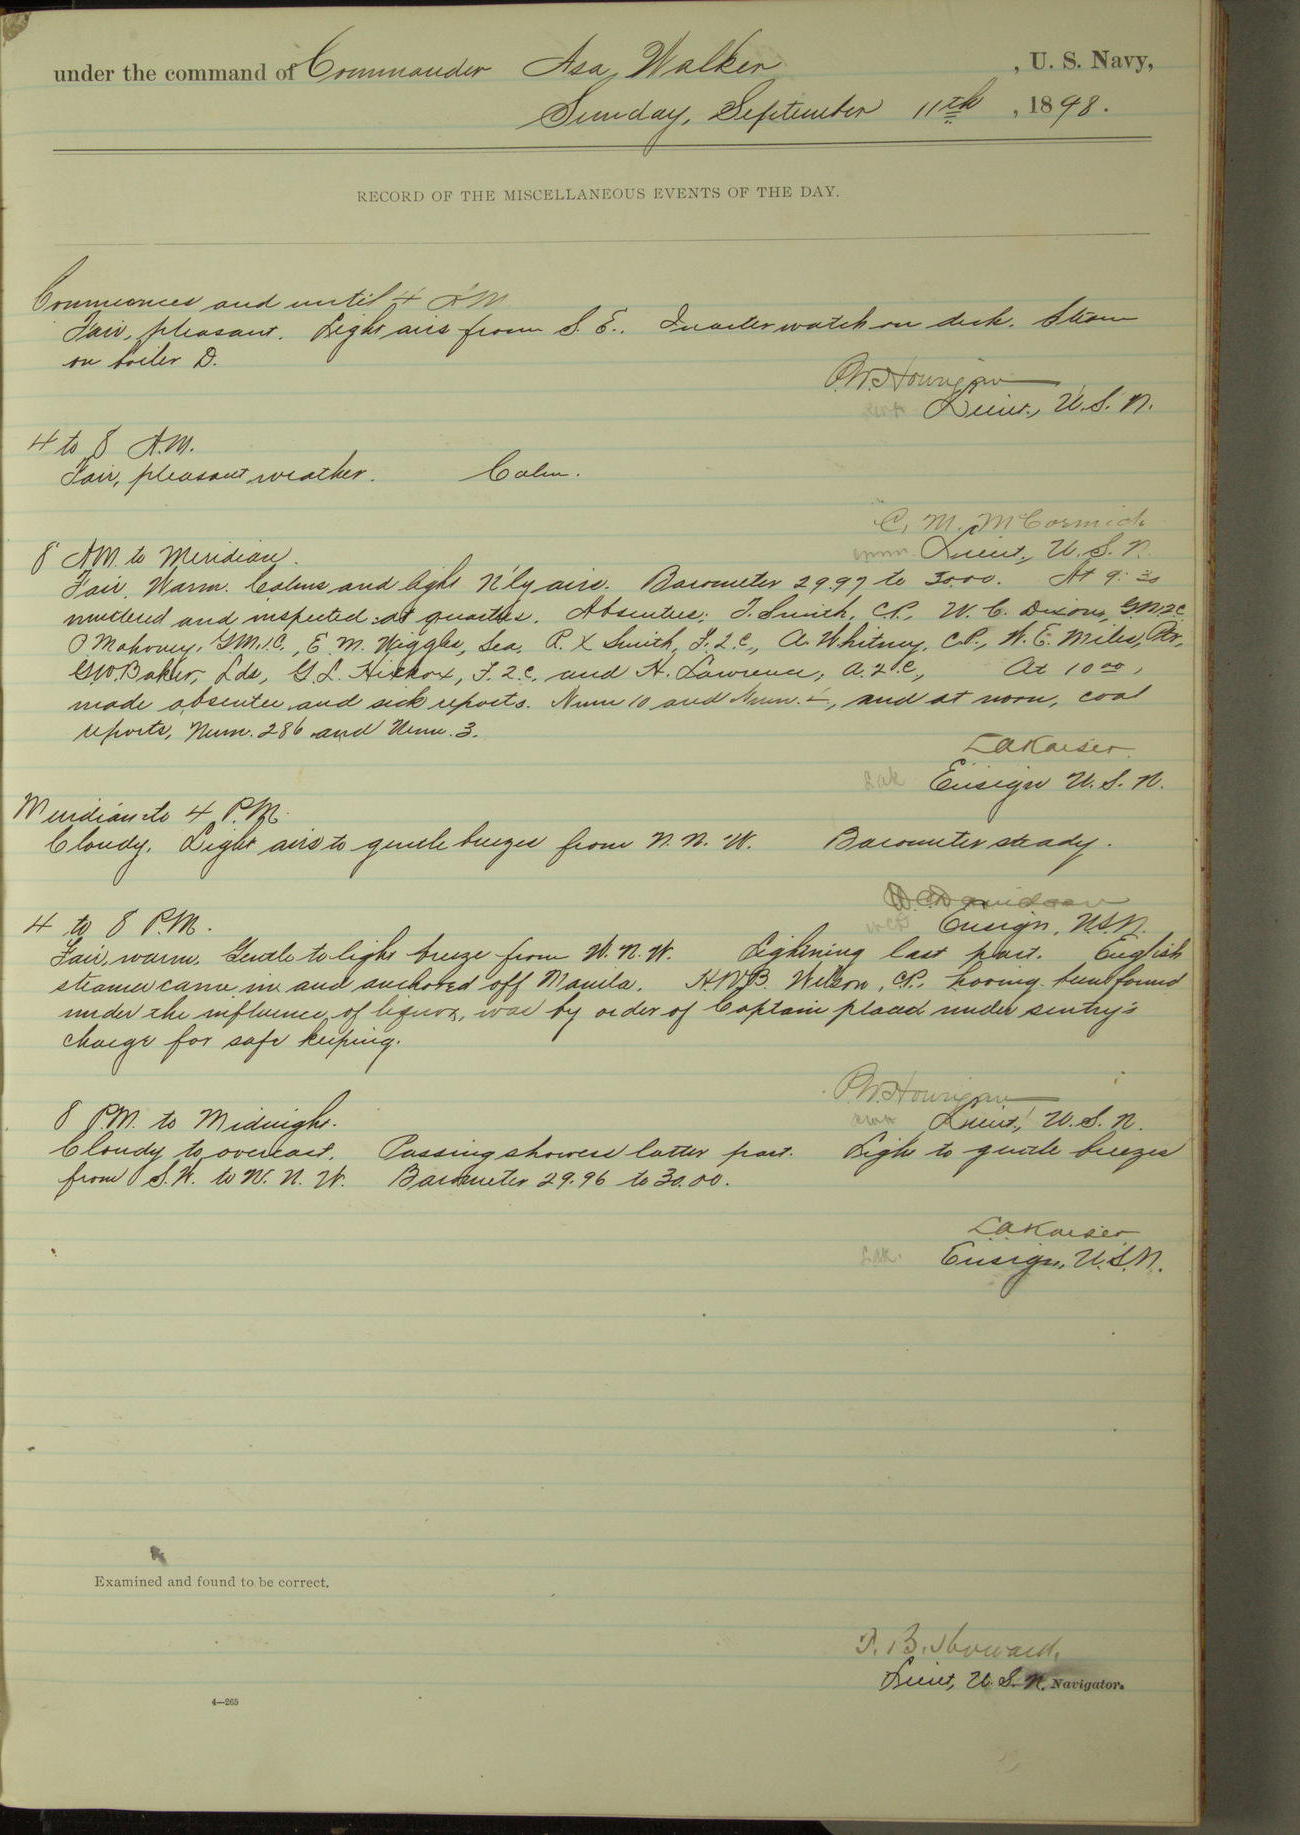 under the command of Commander Asa Walker, U. S. Navy,
Sunday, September 11th, 1898.
RECORD OF THE MISCELLANEOUS EVENTS OF THE DAY.
Commences and until 4 A.M.
Fair, pleasant. Light airs from S. E. Quarter watch on deck. Steam
on boiler D.
P.W. Hourigan
Lieut., U.S.N.
4 to 8 A.M.
Fair, pleasant weather. Calm.
C. M. McCormick
Lieut., U.S.N.
8 A.M. to Meridian.
Fair. Warm. Calms and light N'ly airs. Barometer 29.97 to 30.00. At 9:30
mustered and inspected at quarters. Absentees: T. Smith, C.P., W. C. Dixon, G.M.2C
O Mahoney, G.M.1C., E. M. Wiggles, Sea. R. X Smith, F.2.C., A. Whitney, C.P., W. E. Miles,
G.W. Baker, Lds, G. L. Hickox, F.2.C. and H. Lawrence, A.2.C., At 10 00,
made absentee and sick reports. Num 10 and Num. and at noon, coal
reports, Num. 286 and Num. 3.
L A Kaiser
LAK Ensign U.S.N.
Meridian to 4 P.M.
Cloudy. Light airs to gentle breeze from N. N. W. Barometer steady.
W C Davidson
WCD Ensign, U.S.N.
4 to 8 P.M.
Fair, warm. Gentle to light breeze from W. N. W. Lightning last part. English
steamer came in and anchored off Manila. H.W.B. Wilson, C.P., having been found
under the influence of liquor, was by order of Captain placed under sentry's
charge for safe keeping.
P.W. Hourigan
Lieut., U.S.N.
8 P.M. to Midnight.
Cloudy to overcast. Passing showers latter part. Light to gentle breezes
from S.W. to W. N. W. Barometer 29.96 to 30.00.
L A Kaiser
LAK. Ensign, U.S.N.
Examined and found to be correct.
T. B. Howard,
Lieut, U.S.N. Navigator.
4—265